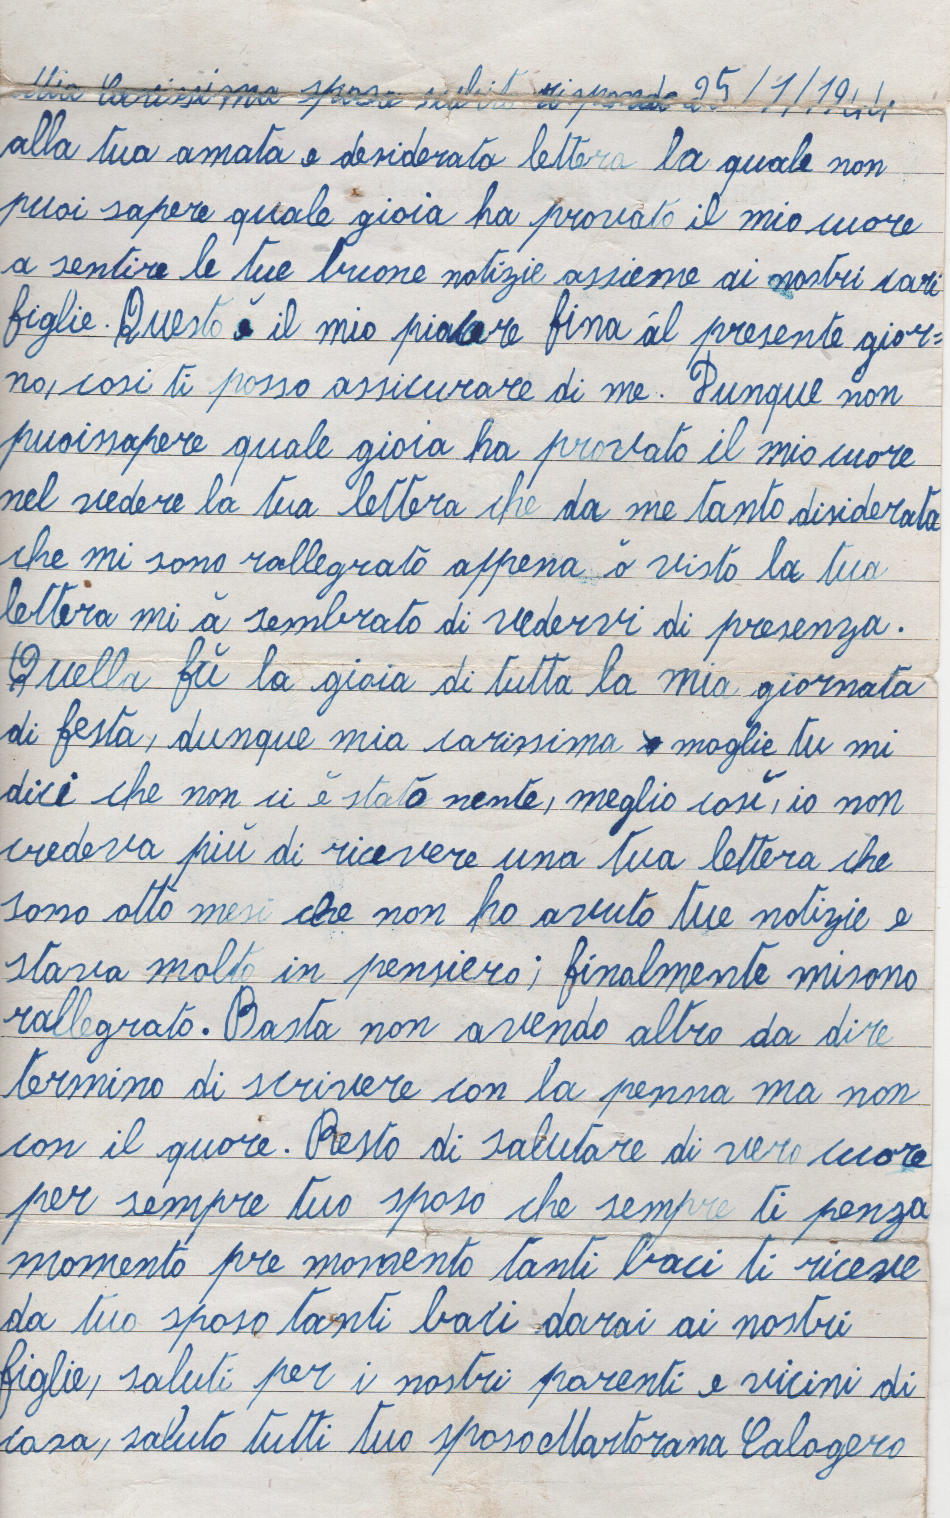 Mia Carissima sposa subito rispondo 25/1/1944
alla tua amata e desiderata lettera la quale non
puoi sapere quale gioia ha provato il mio cuore
a sentire le tue buone notizie assieme ai nostri cari
figlie. Questo è il mio piacere fina ál presente gior=
no, cosi ti posso assicurare di me. Dunque non
puoissapere quale gioia ha provato il mio cuore
nel vedere la tua lettera che da me tanto disiderata
che mi sono rallegrato appena ò visto la tua
lettera mi à sembrato di vedervi di presenza.
Quella fù la gioia di tutta la mia giornata
di festa, dunque mia carissima moglie tu mi
dici che non ci è stato nente, meglio così, io non
credeva più di ricevere una tua lettera che
sono otto mesi che non ho avuto tue notizie e
stava molto in pensiero; finalmente misono
rallegrato. Basta non avendo altro da dire
termino di scrivere con la penna ma non
con il quore. Resto di salutare di vero cuore
per sempre tuo sposo che sempre ti penza
momento pre momento tanti baci ti riceve
da tuo sposo tanti baci darai ai nostri
figlie, saluti per i nostri parenti e vicini di
casa, saluto tutti tuo sposo Martorana Calogero